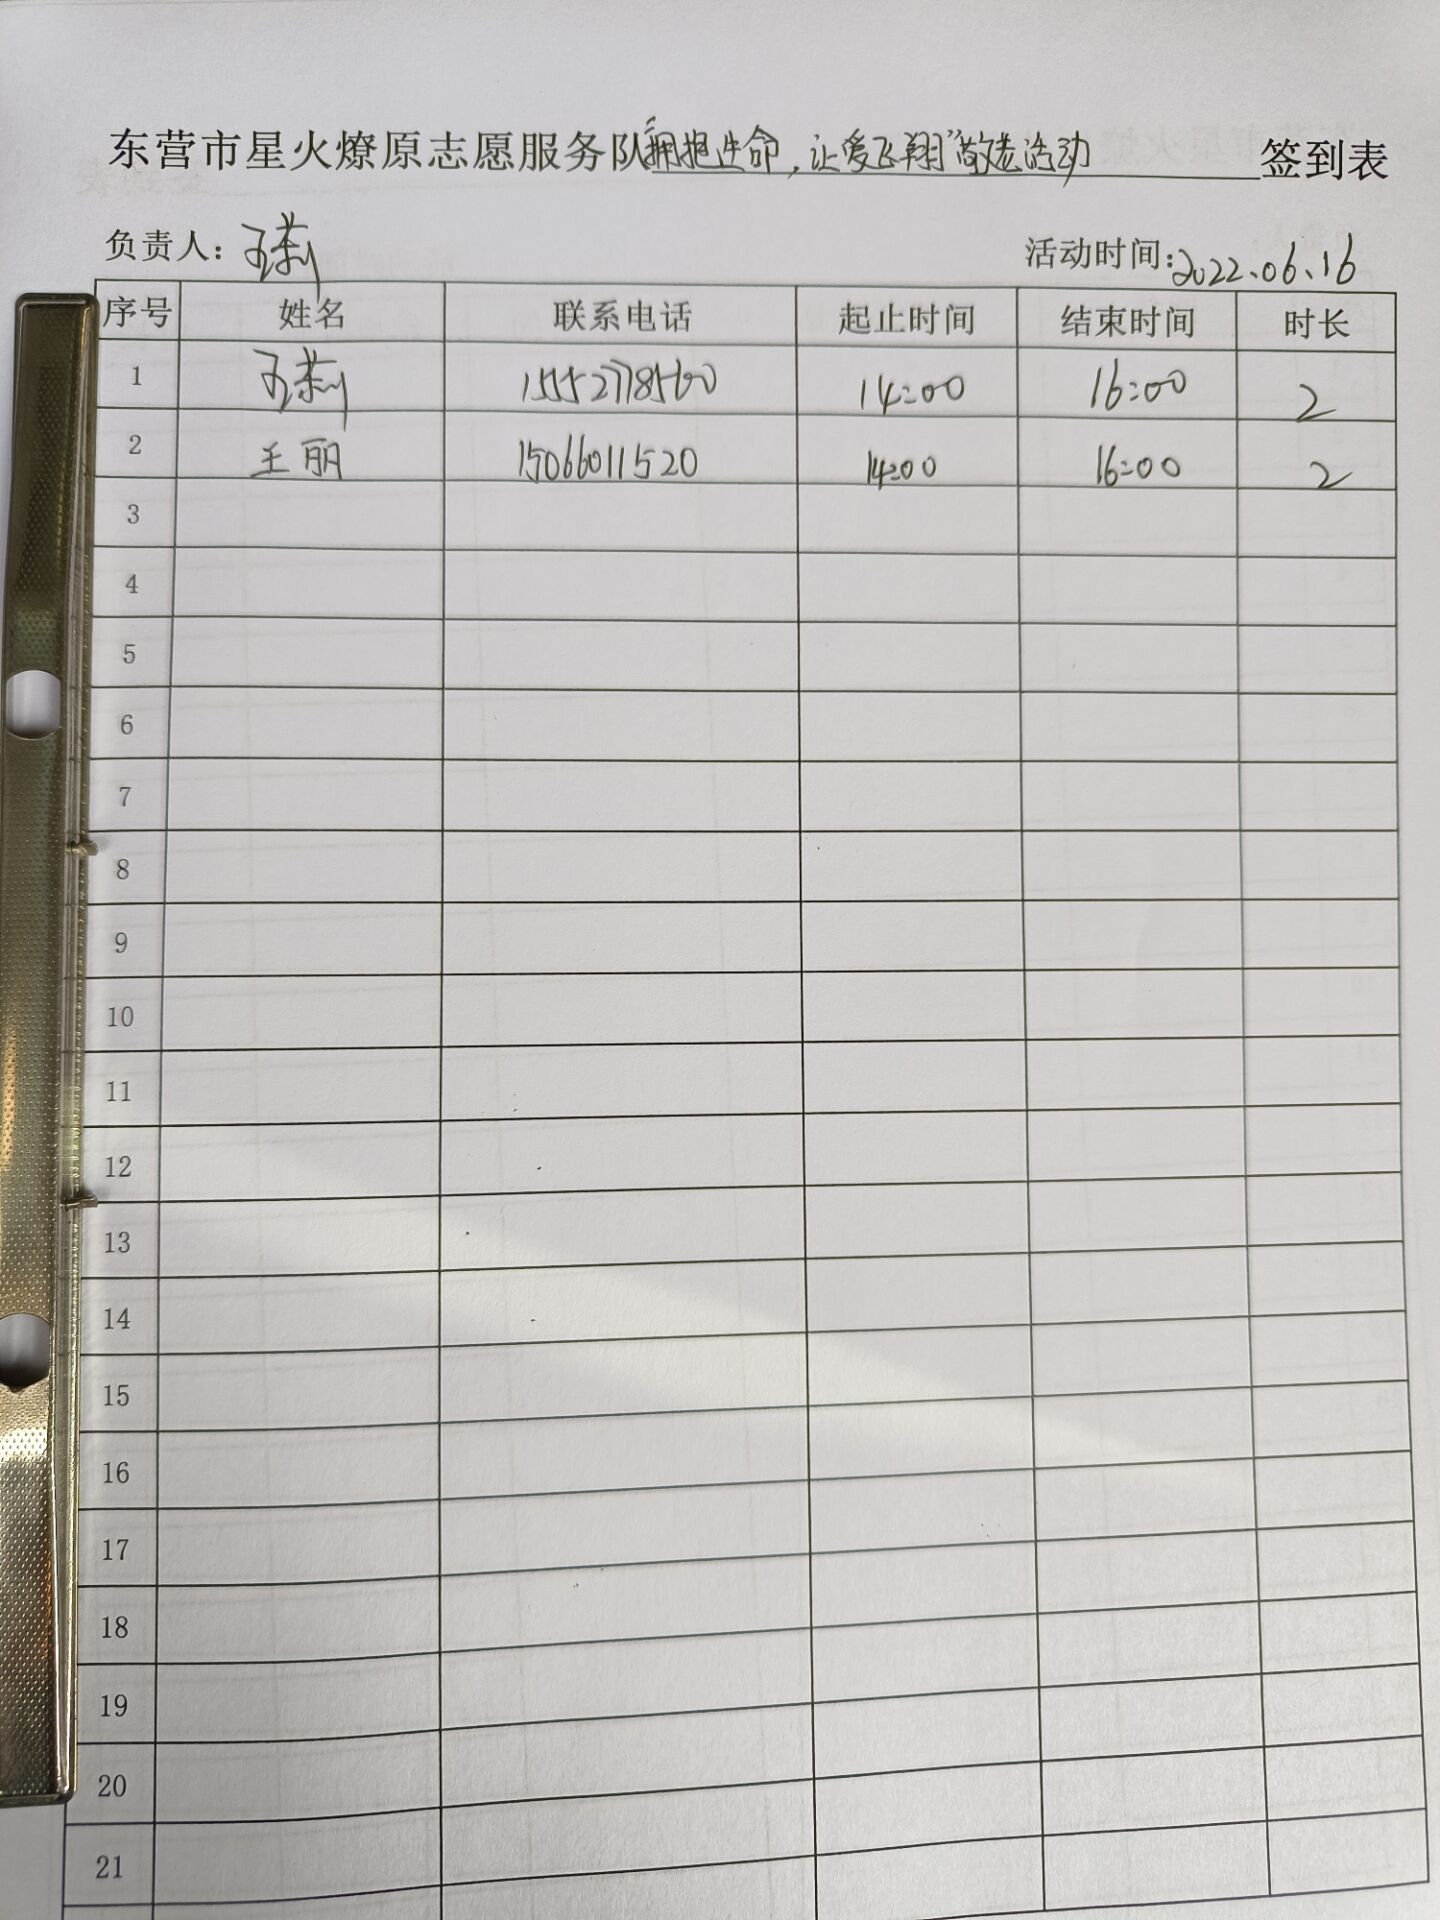 东营市星火燎原志愿服务队“拥抱生命,让爱飞翔”敬老活动 签到表
负责人: 王莉 活动时间:2022.06.16
序号 姓名 联系电话 起止时间 结束时间 时长
1 王莉 15552778560 14:00 16:00 2
2 王丽 15066011520 14:00 16:00 2
3
4
5
6
7
8
9
10
11
12
13
14
15
16
17
18
19
20
21